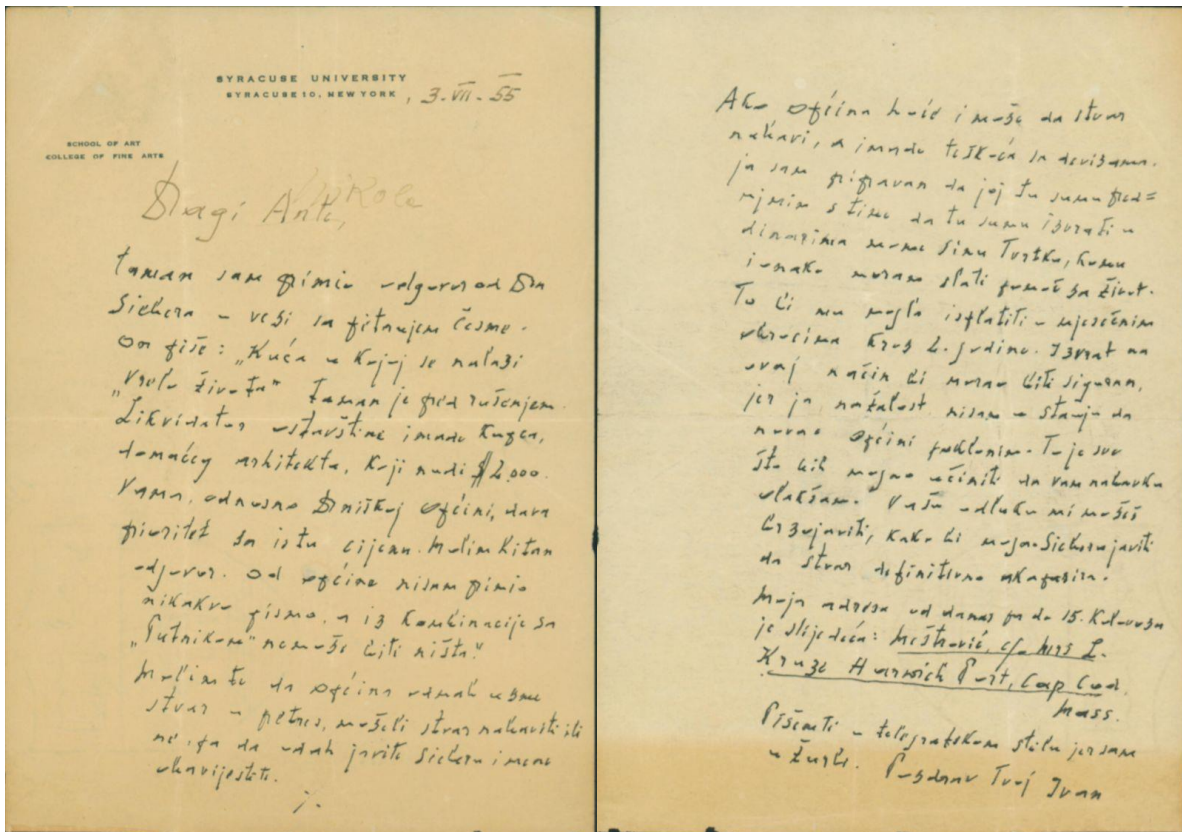 SYRACUSE UNIVERSITY
SYRACUSE 10, NEW YORK , 3-VII-55
SCHOOL OF ART
COLLEGE OF FINE ARTS
Nikole
Dragi Ante,
taman sam primio odgovor od Dra
Sichera u vezi sa pitanjem česme.
On piše: „Kuća u kojoj se nalazi
„Vrelo života" taman je pred rušenjem.
Likvidator ostavštine imade kupca,
domaćeg arhitekta, koji nudi $2,000.
Vama, odnosno Drniškoj općini, dava
prioritet za istu cijenu. Molim hitan
odgovor. Od općine nisam primio
nikakvo pismo, a iz kombinacije sa
„Putnikom" nemože biti ništa."
Molim te da općina odmah uzme
stvar u pretres, moželi stvar nabaviti ili
ne, pa da odah javite Sicheru i mene
obavijestite.
./.
Ako općina hoće i može da stvar
nabavi, a imade teškoća sa devizama.
ja sam pripravan da joj tu sumu pred=
ujmim s time da tu sumu izvrati u
dinarima mome sinu Tvrtku, komu
ionako moram slati pomoć za život.
To bi mu mogla isplatiti u mjesečnim
obrocima kroz 2. godine. Izvrat na
ovaj način bi morao biti siguran,
jer ja, nažalost, nisam u stanju da
novac općini poklonim. To je sve
što bih mogao učiniti da vam nabavku
olakšam. Vašu odluku mi možeš
brzojaviti, kako bi mogao Sicheru javiti
da stvar definitivno
Moja adresa od danas pa do 15. Kolovoza
je slijedeća: Meštrović, c/o Mrs L.
Kruze Harwich Port, Cap Cod.
Mass.
Pišem ti u telegrafskom stilu jer sam
u žurbi. Pozdrav Tvoj Ivan